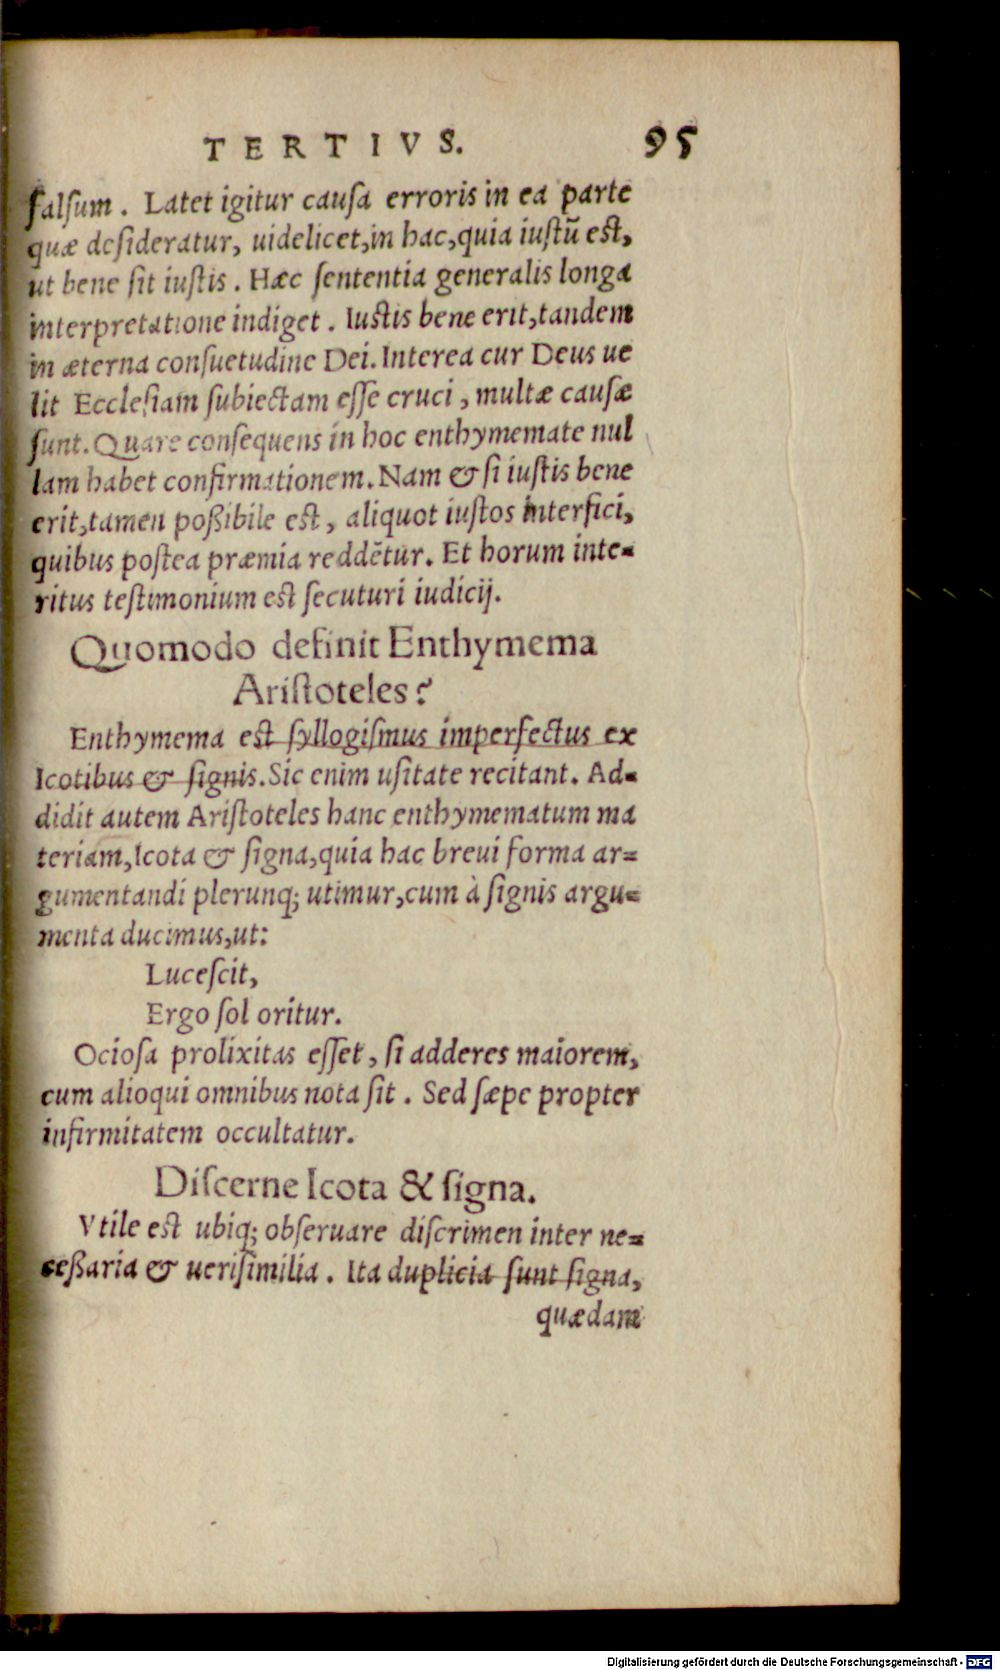 TERTIVS. 95
falſum. Latet igitur cauſa erroris in ea parte
quæ deſideratur, uidelicet, in hac, quia iuſtū eſt,
ut bene ſit iuſtis. Hæc ſententia generalis longa
interpretatione indiget. Iuſtis bene erit, tandem
in æterna conſuetudine Dei. Interea cur Deus ue
lit Eccleſiam ſubiectam eſſe cruci, multæ cauſæ
ſunt. Quare conſequens in hoc enthymemate nul
lam habet confirmationem. Nam & ſi iuſtis bene
erit, tamen poßibile eſt, aliquot iuſtos interfici,
quibus poſtea præmia reddētur. Et horum inte=
ritus teſtimonium eſt ſecuturi iudicij.
Quomodo definit Enthymema
Ariſtoteles?
Enthymema eſt ſyllogiſmus imperfectus ex
Icotibus & ſignis. Sic enim uſitate recitant. Ad=
didit autem Ariſtoteles hanc enthymematum ma
teriam, Icota & ſigna, quia hac breui forma ar=
gumentandi plerunq; utimur, cum à ſignis argu=
menta ducimus, ut:
Luceſcit,
Ergo ſol oritur.
Ocioſa prolixitas eſſet, ſi adderes maiorem,
cum alioqui omnibus nota ſit. Sed ſæpe propter
infirmitatem occultatur.
Diſcerne Icota & ſigna.
Vtile eſt ubiq; obſeruare diſcrimen inter ne=
ceßaria & ueriſimilia. Ita duplicia ſunt ſigna,
quædam
Digitalisierung gefördert durch die Deutsche Forschungsgemeinschaft - DFG